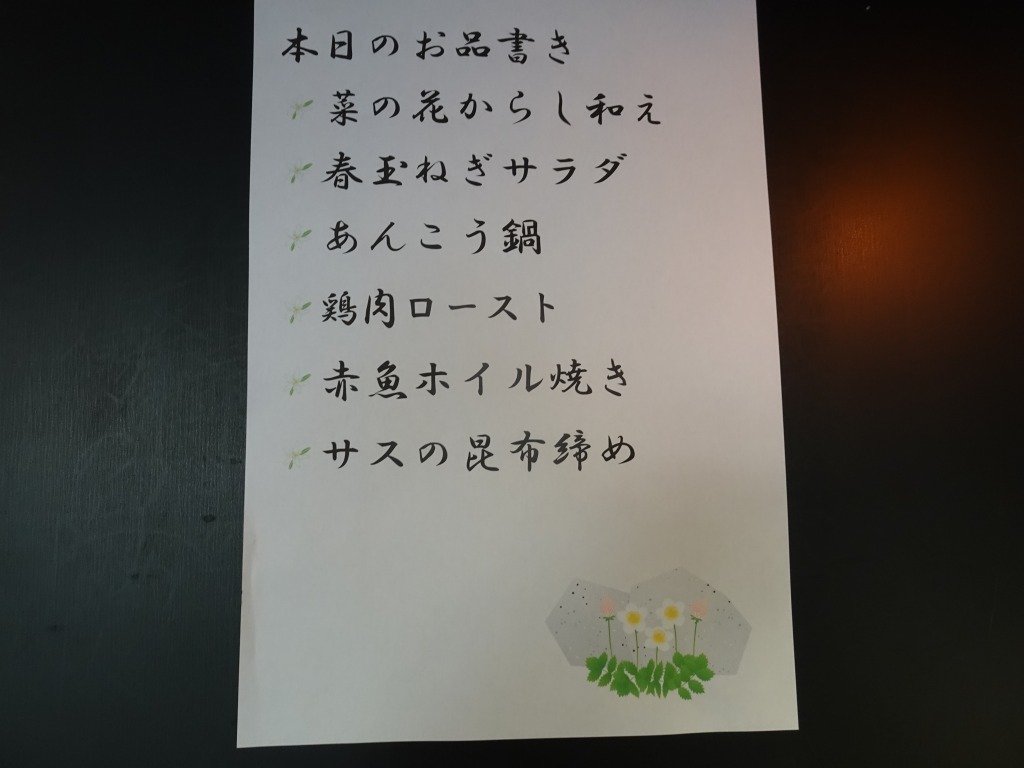 本日のお品書き
菜の花からし和え
春玉ねぎサラダ
あんこう鍋
鶏肉ロースト
赤魚ホイル焼き
サスの昆布締め